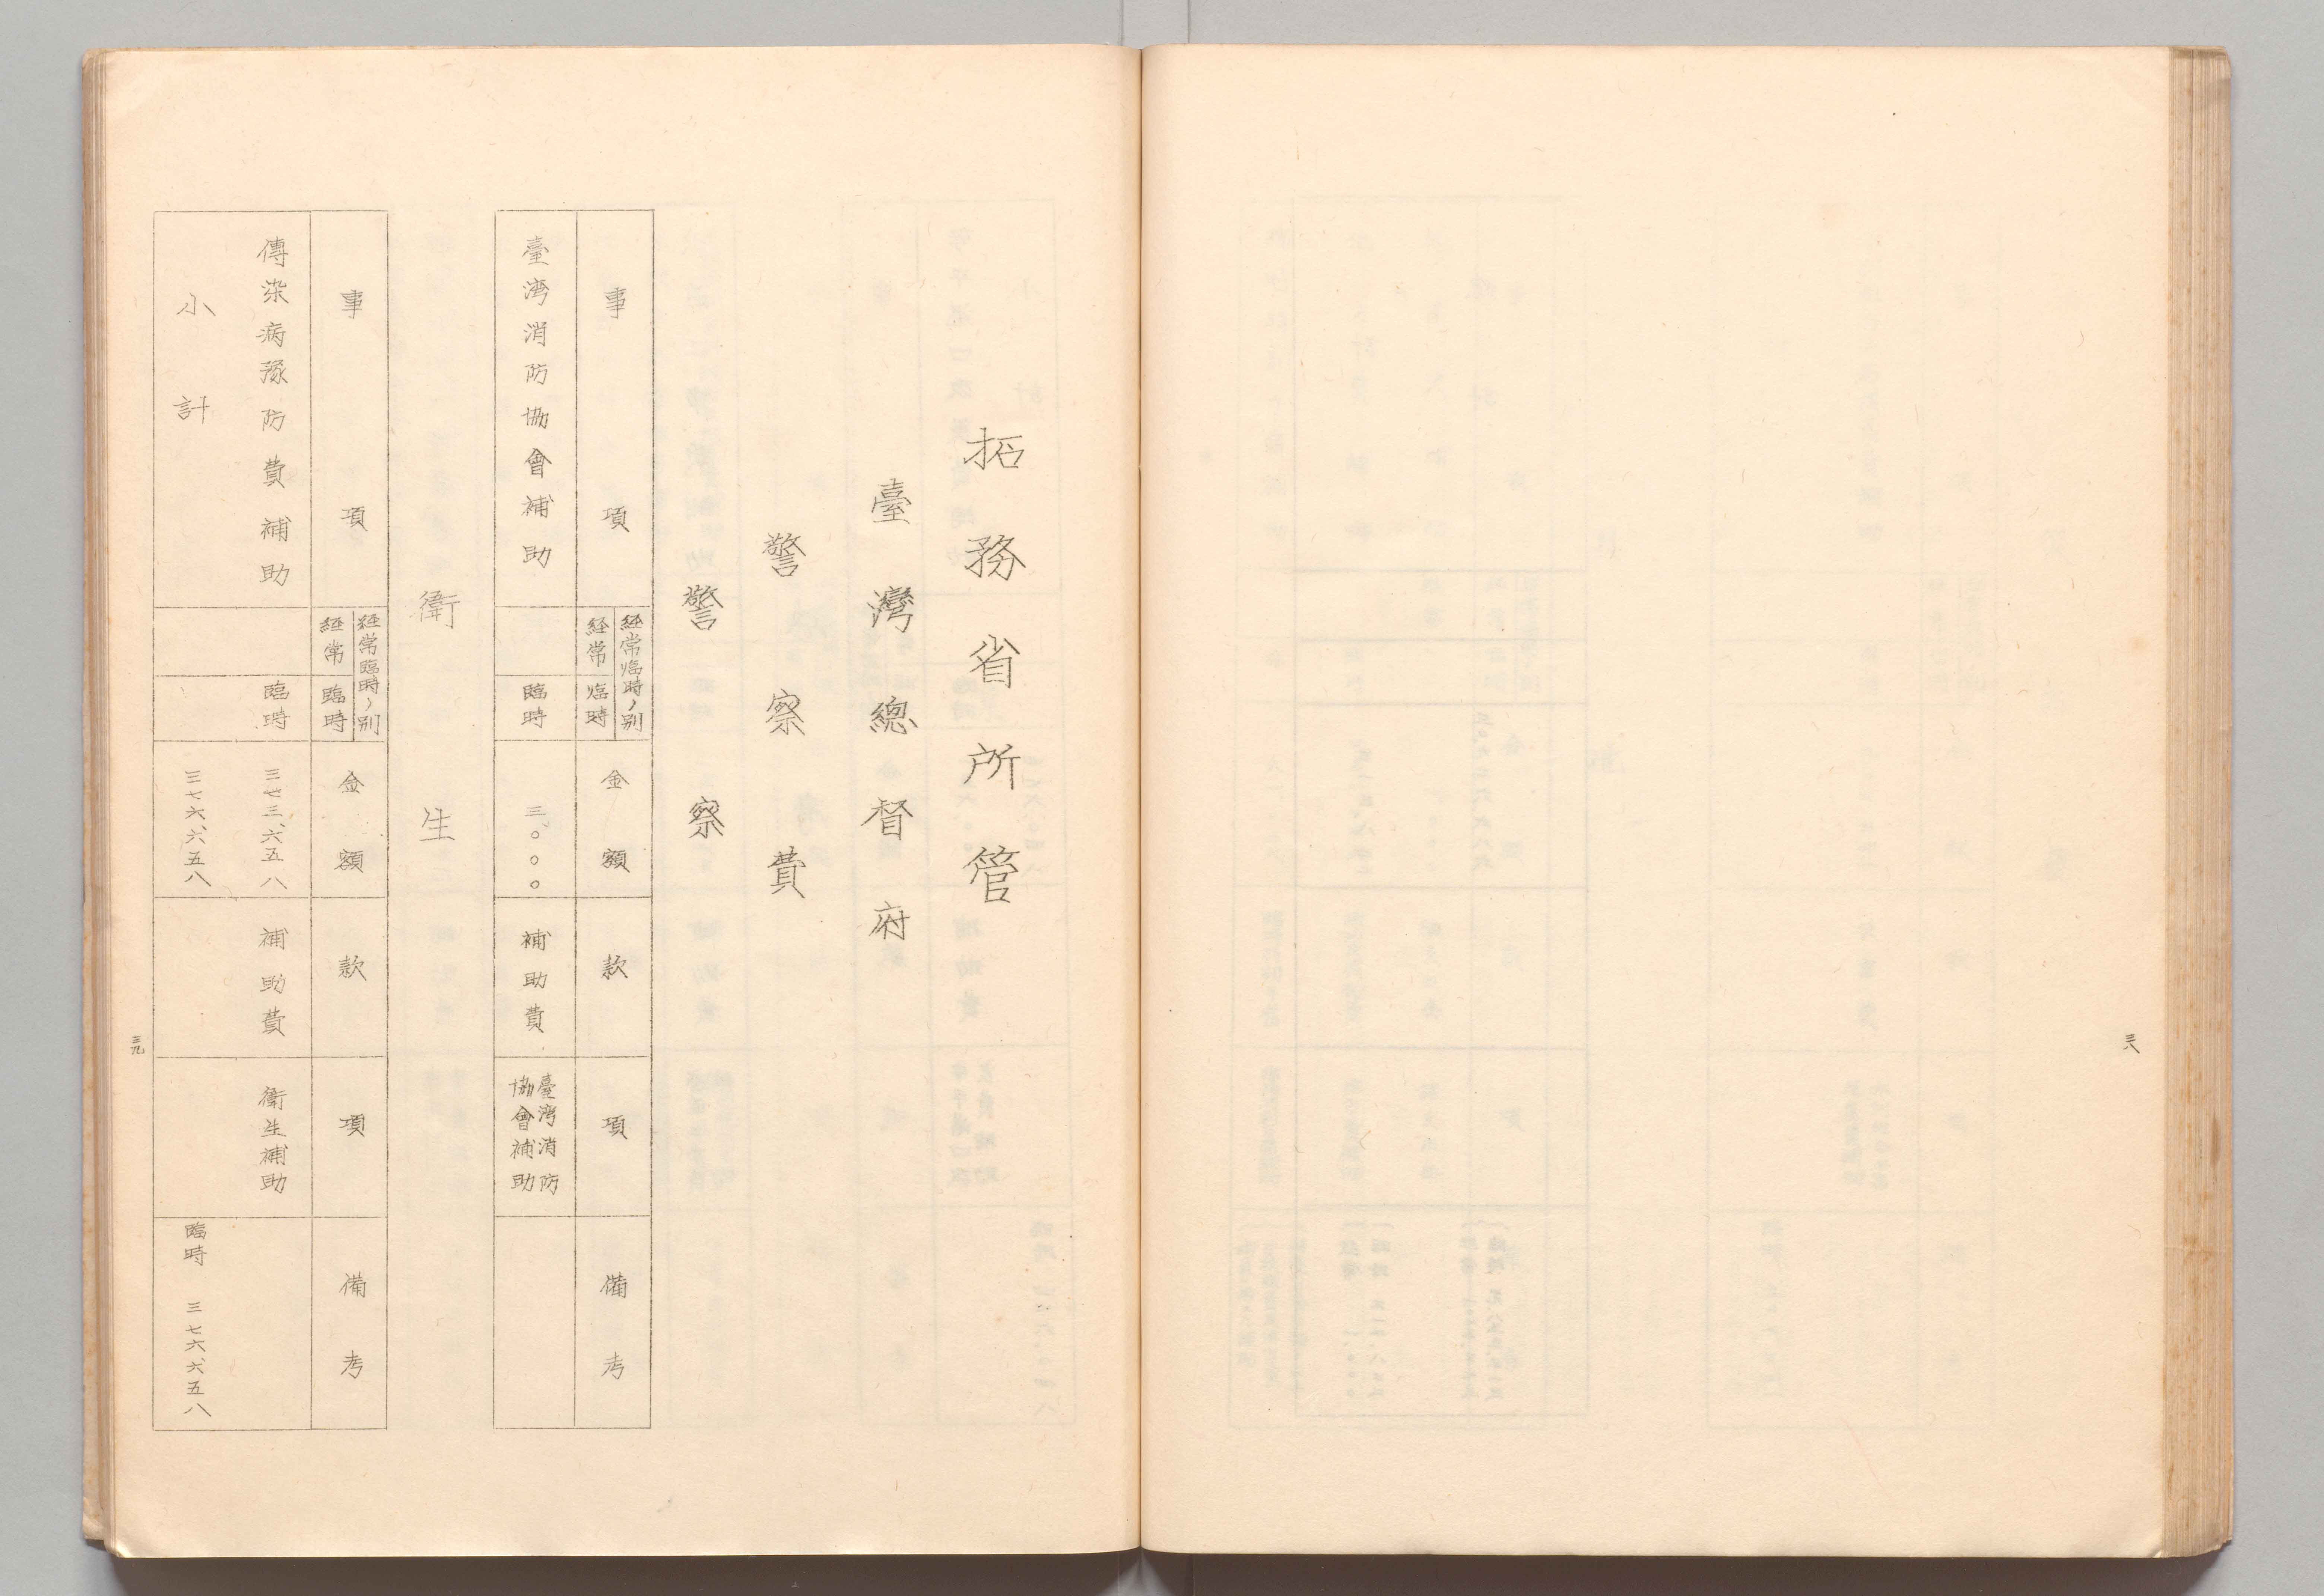 三八
拓務省所管
臺灣總督府
警察費
警察
事項
経常臨時ノ別
経常
臨時
金額
款
項
備考
臺湾消防協會補助
臨時
三、〇〇〇
補助費
臺湾消防
協會補助
衛生
事項
経常臨時ノ別
経常
臨時
金額
款
項
備考
傳染病豫防費補助
臨時
三七三、六五八
補助費
衛生補助
小計
三七六、六五八
臨時 三七六、六五八
三九